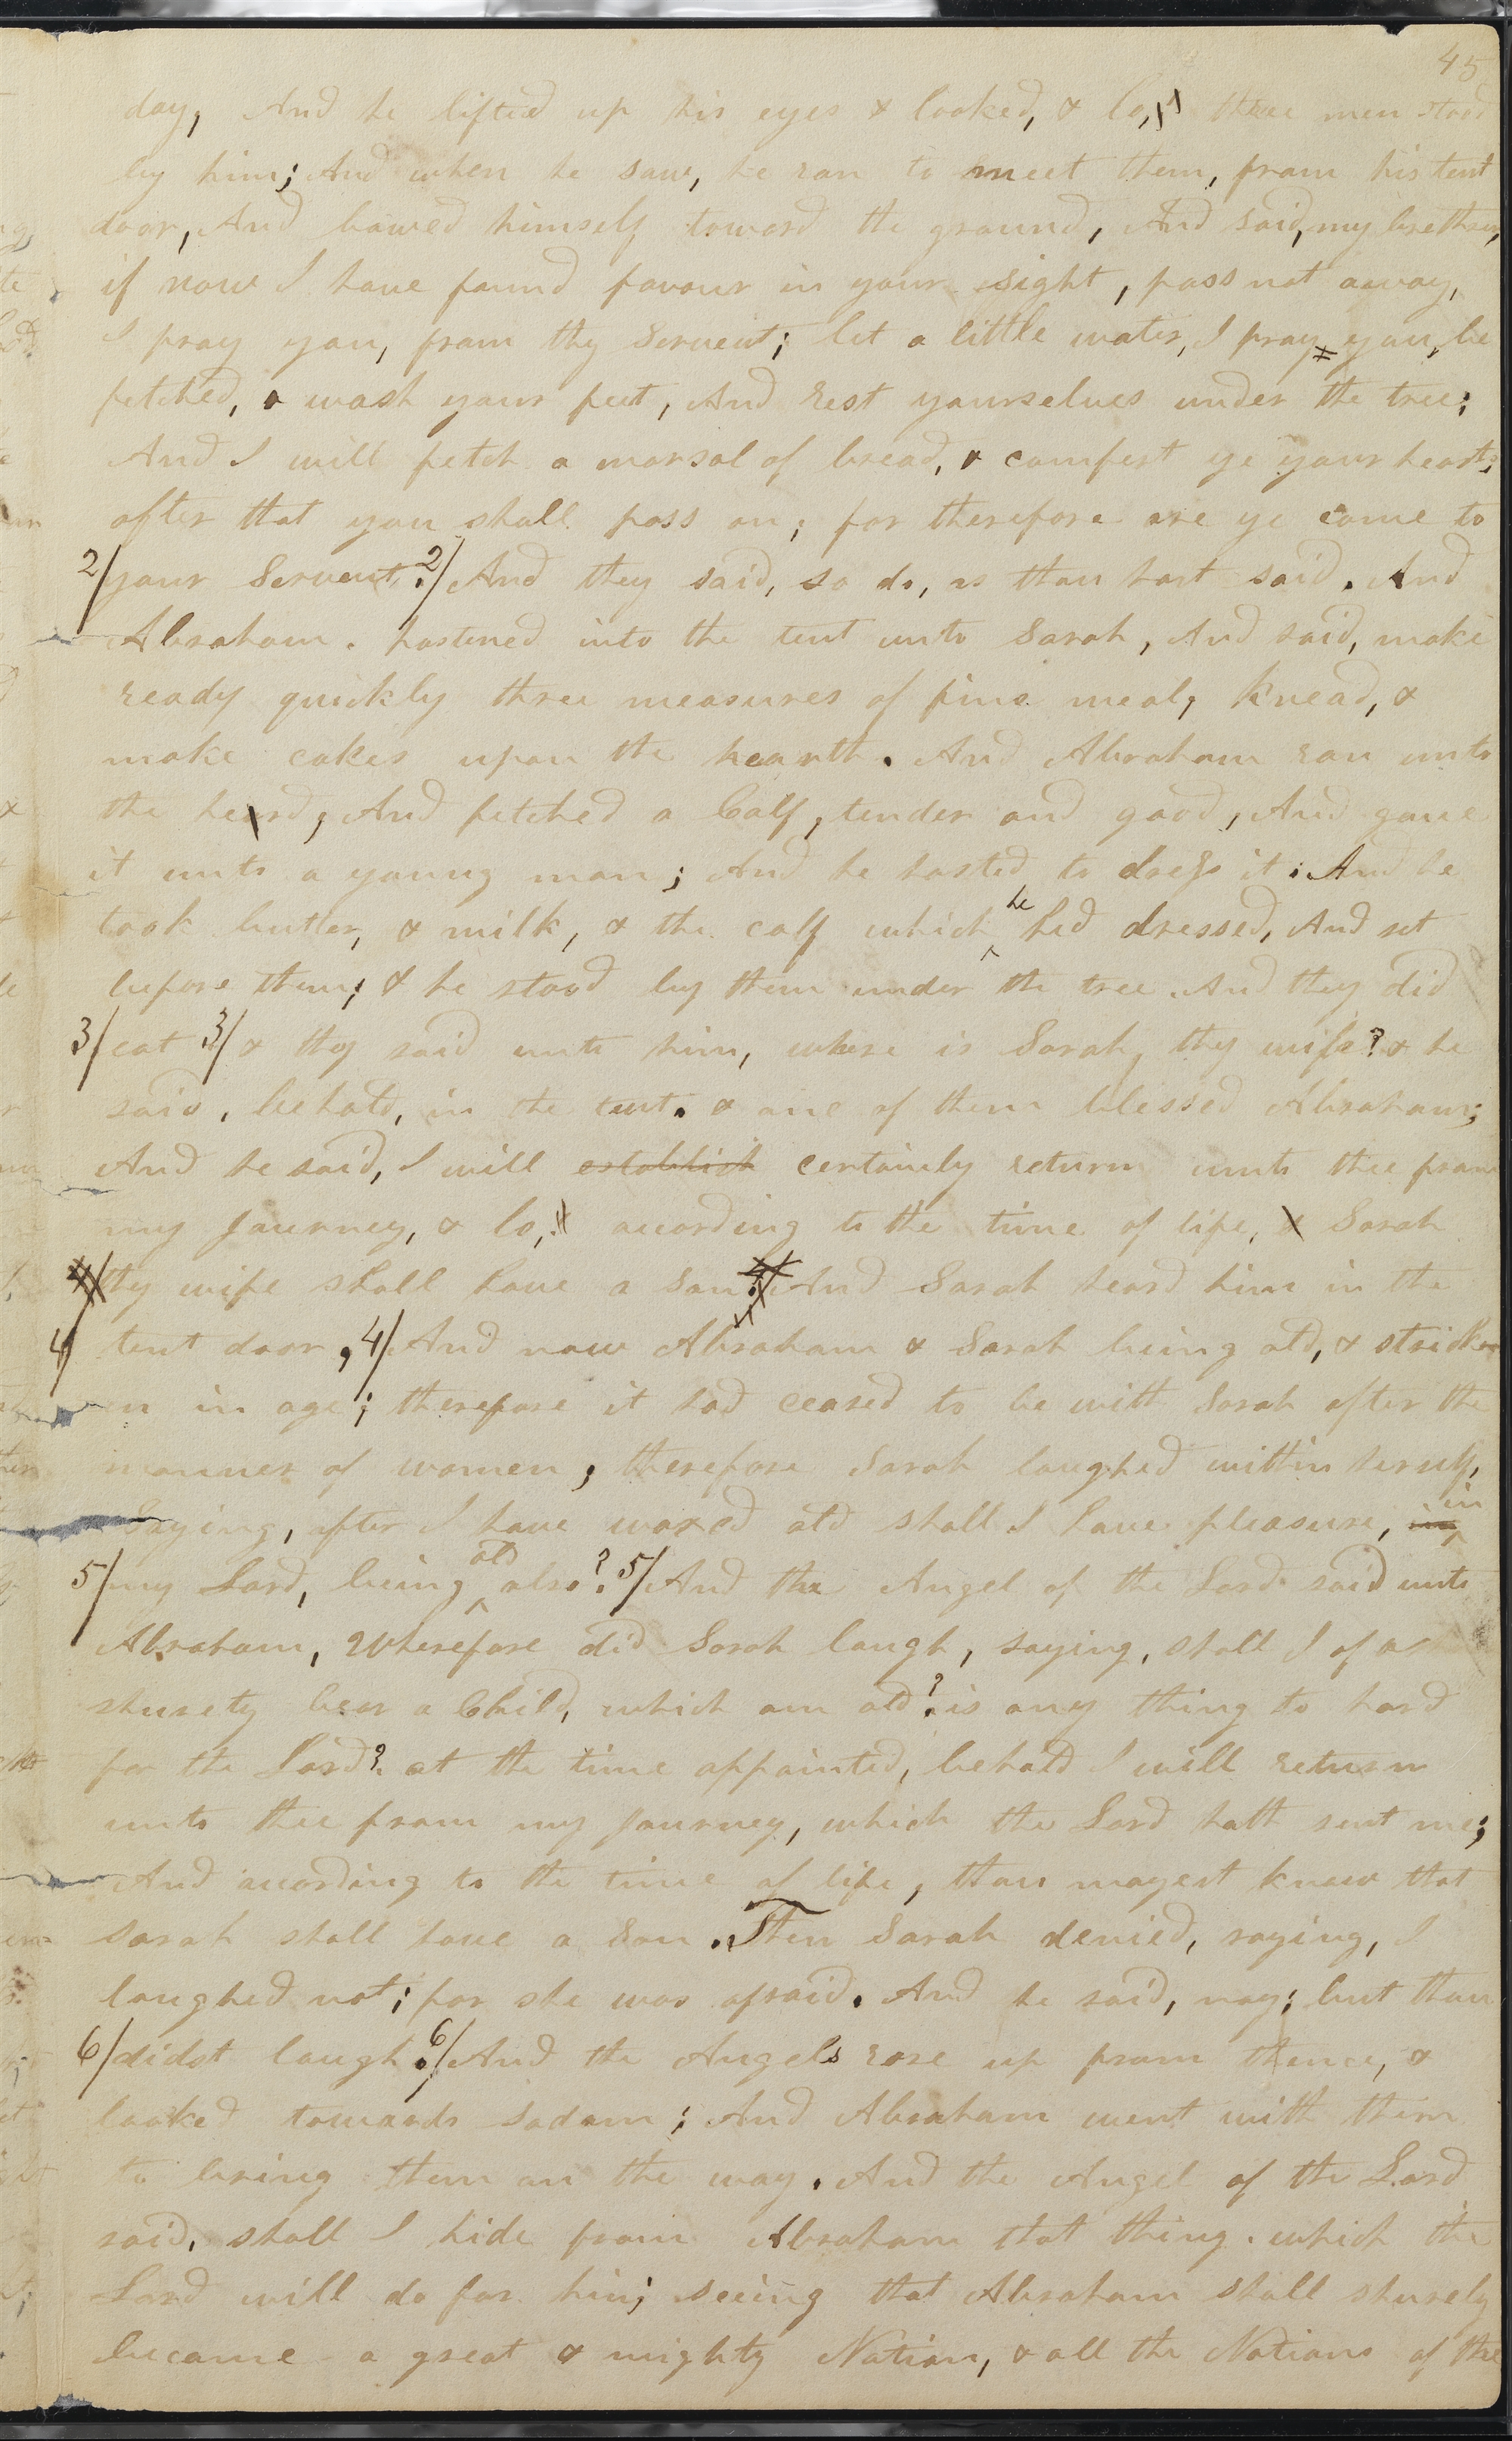 45
day, And he lifted up his eyes & looked, & lo, three men stood
by him; And when he saw, he ran to meet them, from his tent
door, And bowed himself toward the ground, And said, my brethren,
if now I have found favour in your sight, pass not away,
I pray you, from thy Servent; let a little water, I pray you, be
fetched, & wash your feet, And rest yourselves under the tree;
And I will fetch a morsal of bread, & comfert ye your hearts;
after that you shall pass on; for therefore are ye come to
2/ your Servent. 2/ And they said, so do, as thou hast said. And
Abraham. hastened into the tent unto Sarah, And said, make
ready quickly three measures of fine meal, knead, &
make cakes upon the hearth. And Abraham ran unto
the heard, And fetched a Calf, tender and good, And gave
it unto a young man; And he hasted to dress it; And he
took butter, & milk, & the calf which he had dressed, And set
before them; & he stood by them under the tree. And they did
3/ eat 3/ & they said unto him, where is Sarah, thy wife? & he
said, behold, in the tent. & one of them blessed Abraham;
And he said, I will establish certainly return unto thee from
my Journey, & lo, acording to the time of life, & Sarah
4/ thy wife shall have a son. 4/ And Sarah heard him in the
4/ tent door, 4/ And now Abraham & Sarah being old, & strick
en in age; therefore it had ceased to be with Sarah after the
manner of women; therefore Sarah laughed within herself,
Saying, after I have waxed old shall I have pleasure, my in
5/ my Lord, being old also? 5/ And the Angel of the Lord said unto
Abraham, Wherefore did Sarah laugh, saying, shall I of a
shurety bear a Child, which am old? is any thing to hard
for the Lord? at the time appointed, behold I will return
unto thee from my Journey, which the Lord hath sent me;
And acording to the time of life, thou mayest know that
Sarah shall have a Son. Then Sarah denied, saying, I
laughed not; for she was afraid. And he said, nay; but thou
6/ didst laugh. 6/ And the Angels rose up from thence, &
looked towards sodom; And Abraham went with them
to bring them on the way. And the Angel of the Lord
said, shall I hide from Abraham that thing. which the
Lord will do for him; seeing that Abraham shall shurely
become a great & mighty Nation, & all the Nations of the